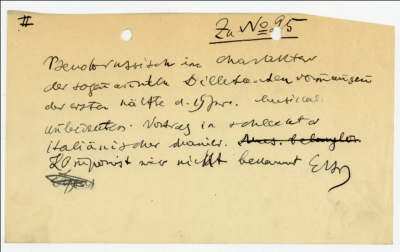 II
Zu No. 95
Pseudorussisch im Charakter
der sogenannten Dilletanten romanzen
der ersten Hälfte d. 19 Jhr. Musical.
unbedeutend. Vortrag in schlechter
italiänischer Manier.
Komponist mir nicht bekannt